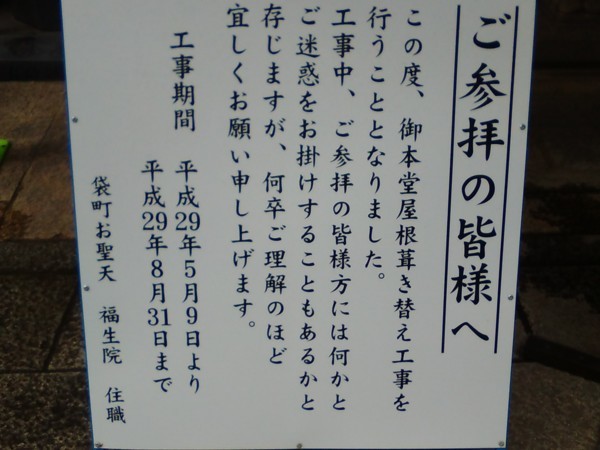 ご参拝の皆様へ
この度、御本堂屋根葺き替え工事を
行うこととなりました。
工事中、ご参拝の皆様方には何かと
ご迷惑をお掛けすることもあるかと
存じますが、何卒ご理解のほど
宜しくお願い申し上げます。
工事期間　平成29年5月9日より
平成29年8月31日まで
袋町お聖天　福生院　住職